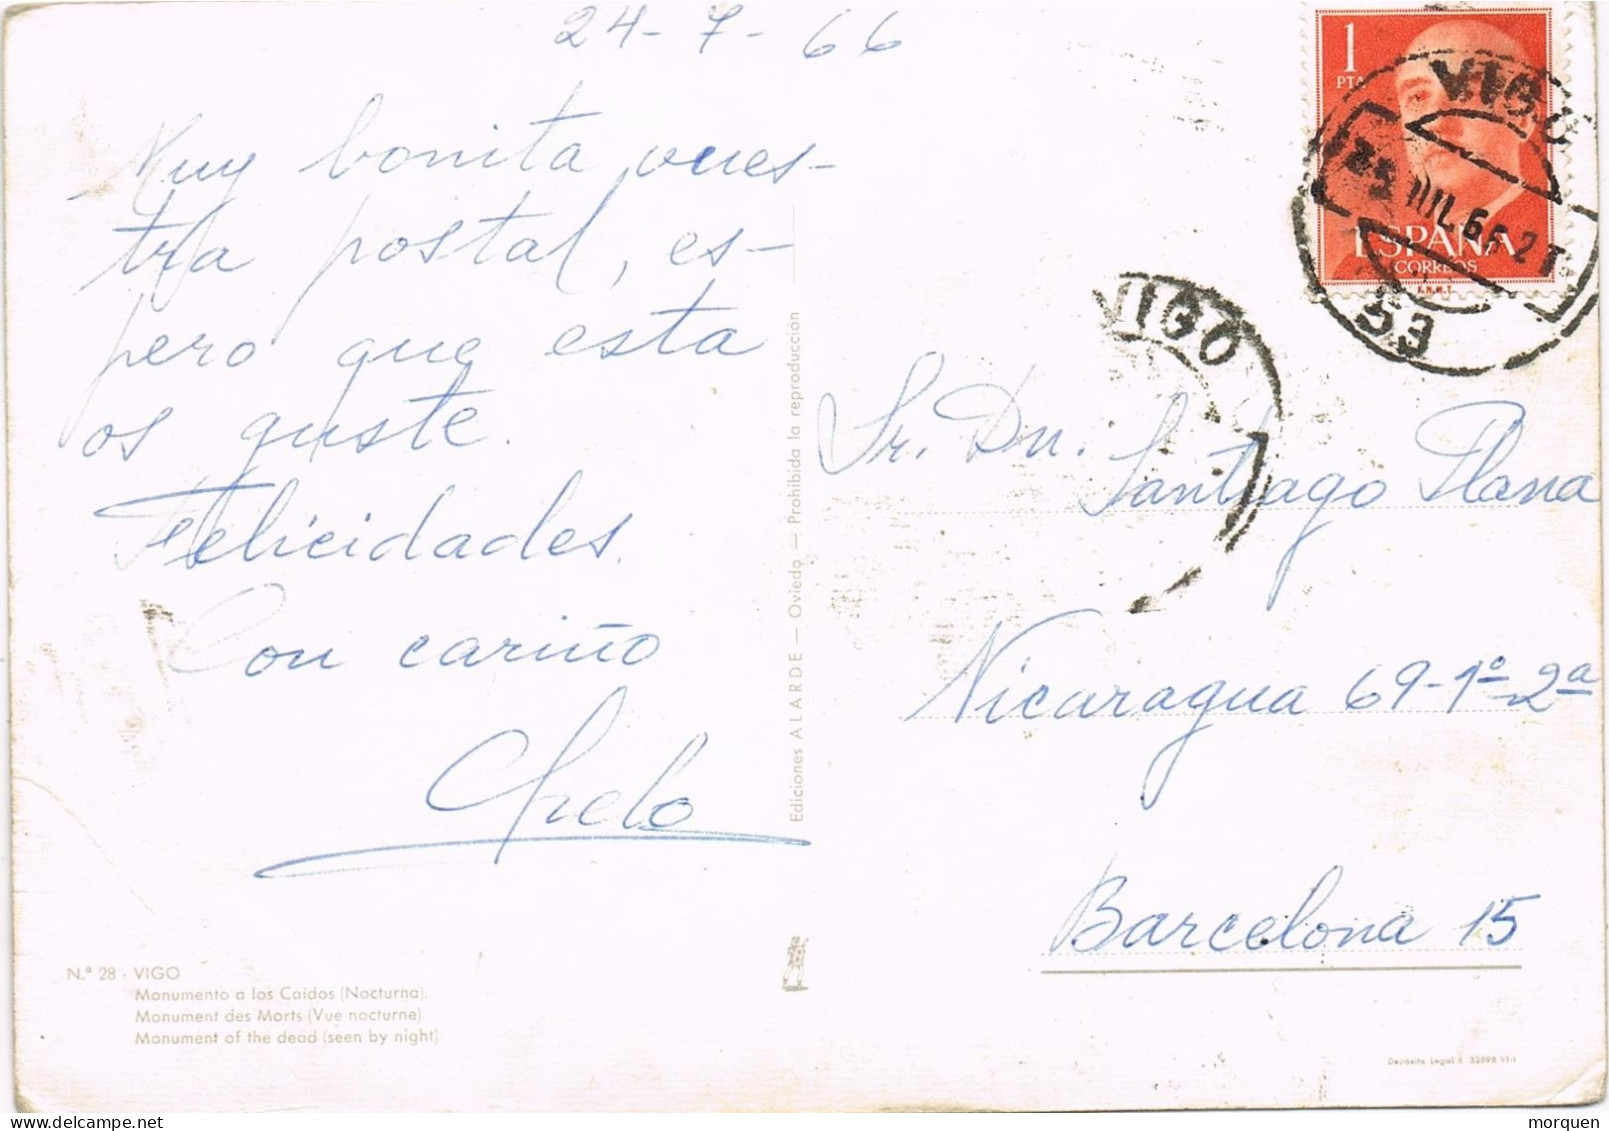 24-7-66
Muy bonita vues-
tra postal, es-
pero que esta
os guste.
Felicidades.
Con cariño
Chelo
N.º 28 - VIGO
Monumento a los Caídos (Nocturna).
Monument des Morts (Vue nocturne).
Monument of the dead (seen by night)
Ediciones ALARDE — Oviedo — Prohibida la reproducción
1
PTA
ESPAÑA
CORREOS
F.N.M.T.
VIGO
53
VIGO
Sr. Dn. Santiago Plana
Nicaragua 69-1º-2ª
Barcelona 15
Depósito Legal
morquen